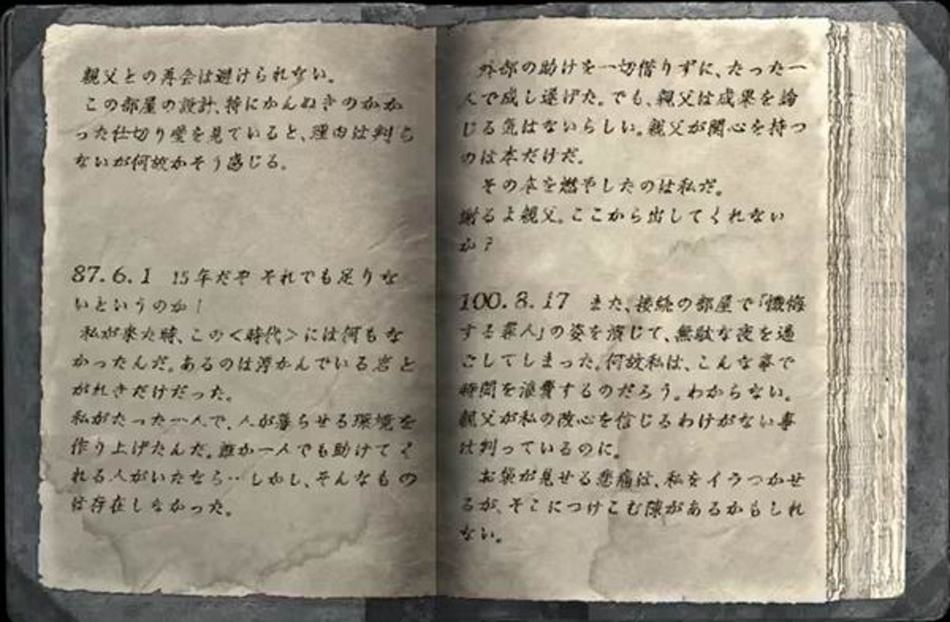 親父との再会は避けられない。
この部屋の設計、特にかんぬきのかか
った仕切り壁を見ていると、理由は判ら
ないが何故かそう感じる。
87.6.1 15年だぞ それでも足りな
いというのか!
私が来た時、この<時代>には何もな
かったんだ。あるのは浮かんでいる岩と
がれきだけだった。
私がたった一人で、人が暮らせる環境を
作り上げたんだ。誰か一人でも助けてく
れる人がいたなら… しかし、そんなもの
は存在しなかった。
外部の助けを一切借りずに、たった一
人で成し遂げた。でも、親父は成果を論
じる気はないらしい。親父が関心を持つ
のは本だけだ。
その本を燃やしたのは私だ。
謝るよ親父。ここから出してくれない
か?
100.8.17 また、接続の部屋で「懺悔
する罪人」の姿を演じて、無駄な夜を過
ごしてしまった。何故私は、こんな事で
時間を浪費するのだろう。わからない。
親父が私の改心を信じるわけがない事
は判っているのに。
お袋が見せる悲痛は、私をイラつかせ
るが、そこにつけこむ隙があるかもしれ
ない。